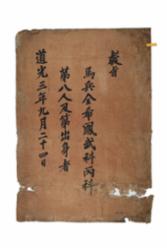 教旨
馬兵全布鳳武科丙科
第八人及第出身者
道光三年九月二十四日